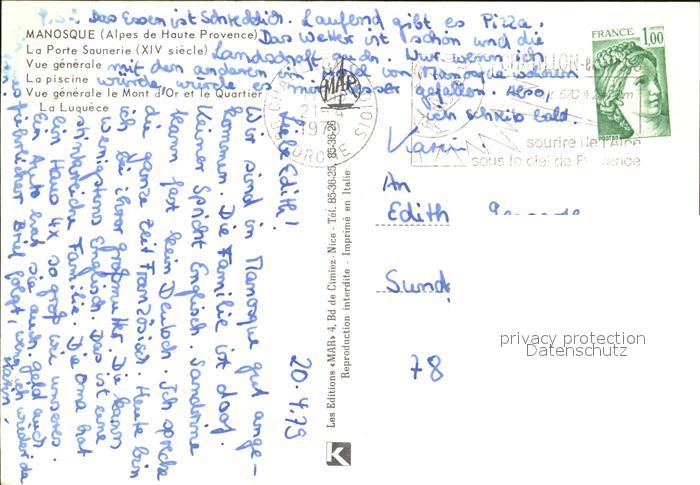 P.S.: Das Essen ist Schrecklich. Laufend gibt es Pizza.
MANOSQUE (Alpes de Haute Provence)
Das Wetter ist schön und die
La Porte Saunerie (XIV siècle)
Landschaft auch. Nur wenn ich
Vue générale
mit dem anderen in
Manosque wären
La piscine
würde würde es mir besser gefallen. Also,
Vue générale le Mont d'Or et le Quartier
La Luquèce
ich schreib bald.
Karin
FRANCE
1,00
MAR
1979
sourire de l'Aino
sous le ciel de Provence
20.4.79
Liebe Edith!
Wir sind in Manosque gut ange-
kommen. Die Familie ist doof.
Keiner Spricht Englisch. Sandrine
kann fast kein Deutsch. Ich spreche
die ganze Zeit Französisch. Heute bin
ich bei ihrer Großmutter. Die kann
wenigstens Englisch. Das ist eine
stinkreiche Familie. Die Oma hat
ein Haus 4x so groß wie unseres.
Ein Auto hat sie auch. Geld auch
ausführlicher Brief folgt, wenn ich wieder da
Les Editions «MAR» 4, Bd de Cimiez - Nice - Tél. 85-36-25, 85-36-26
Reproduction interdite - Imprimé en Italie
K
An
Edith
Sund
78
privacy protection
Datenschutz